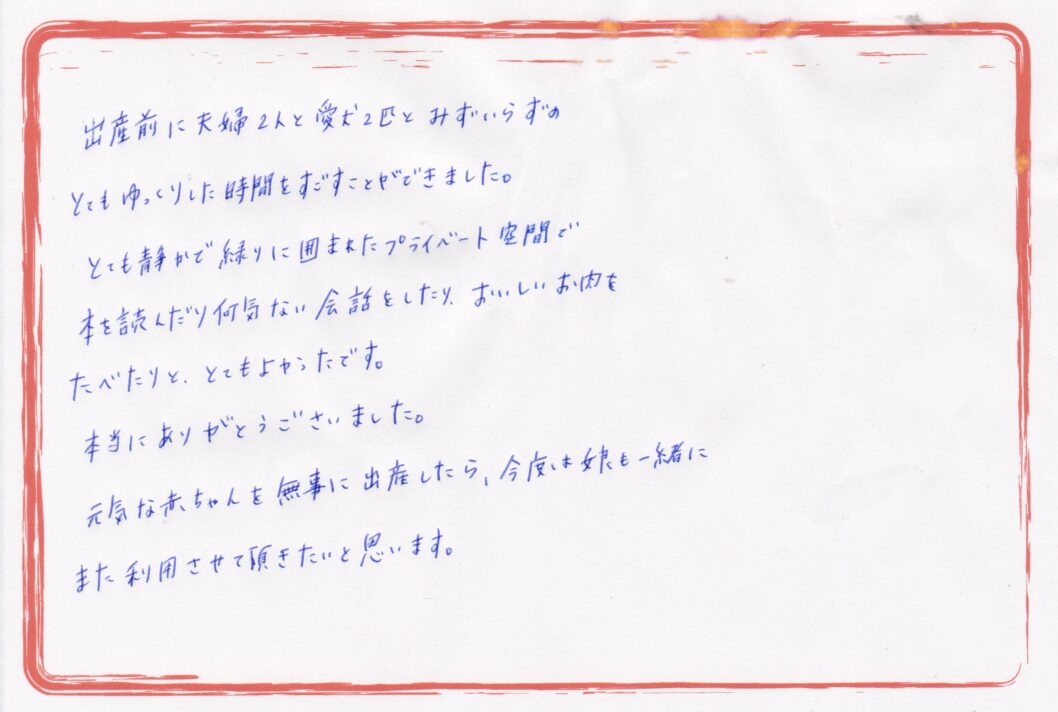 出産前に夫婦2人と愛犬2匹とみずいらずの
とてもゆっくりした時間をすごすことができました。
とても静かで緑りに囲まれたプライベート空間で
本を読んだり何気ない会話をしたり、おいしいお肉を
たべたりと、とてもよかったです。
本当にありがとうございました。
元気な赤ちゃんを無事に出産したら、今度は娘も一緒に
また利用させて頂きたいと思います。